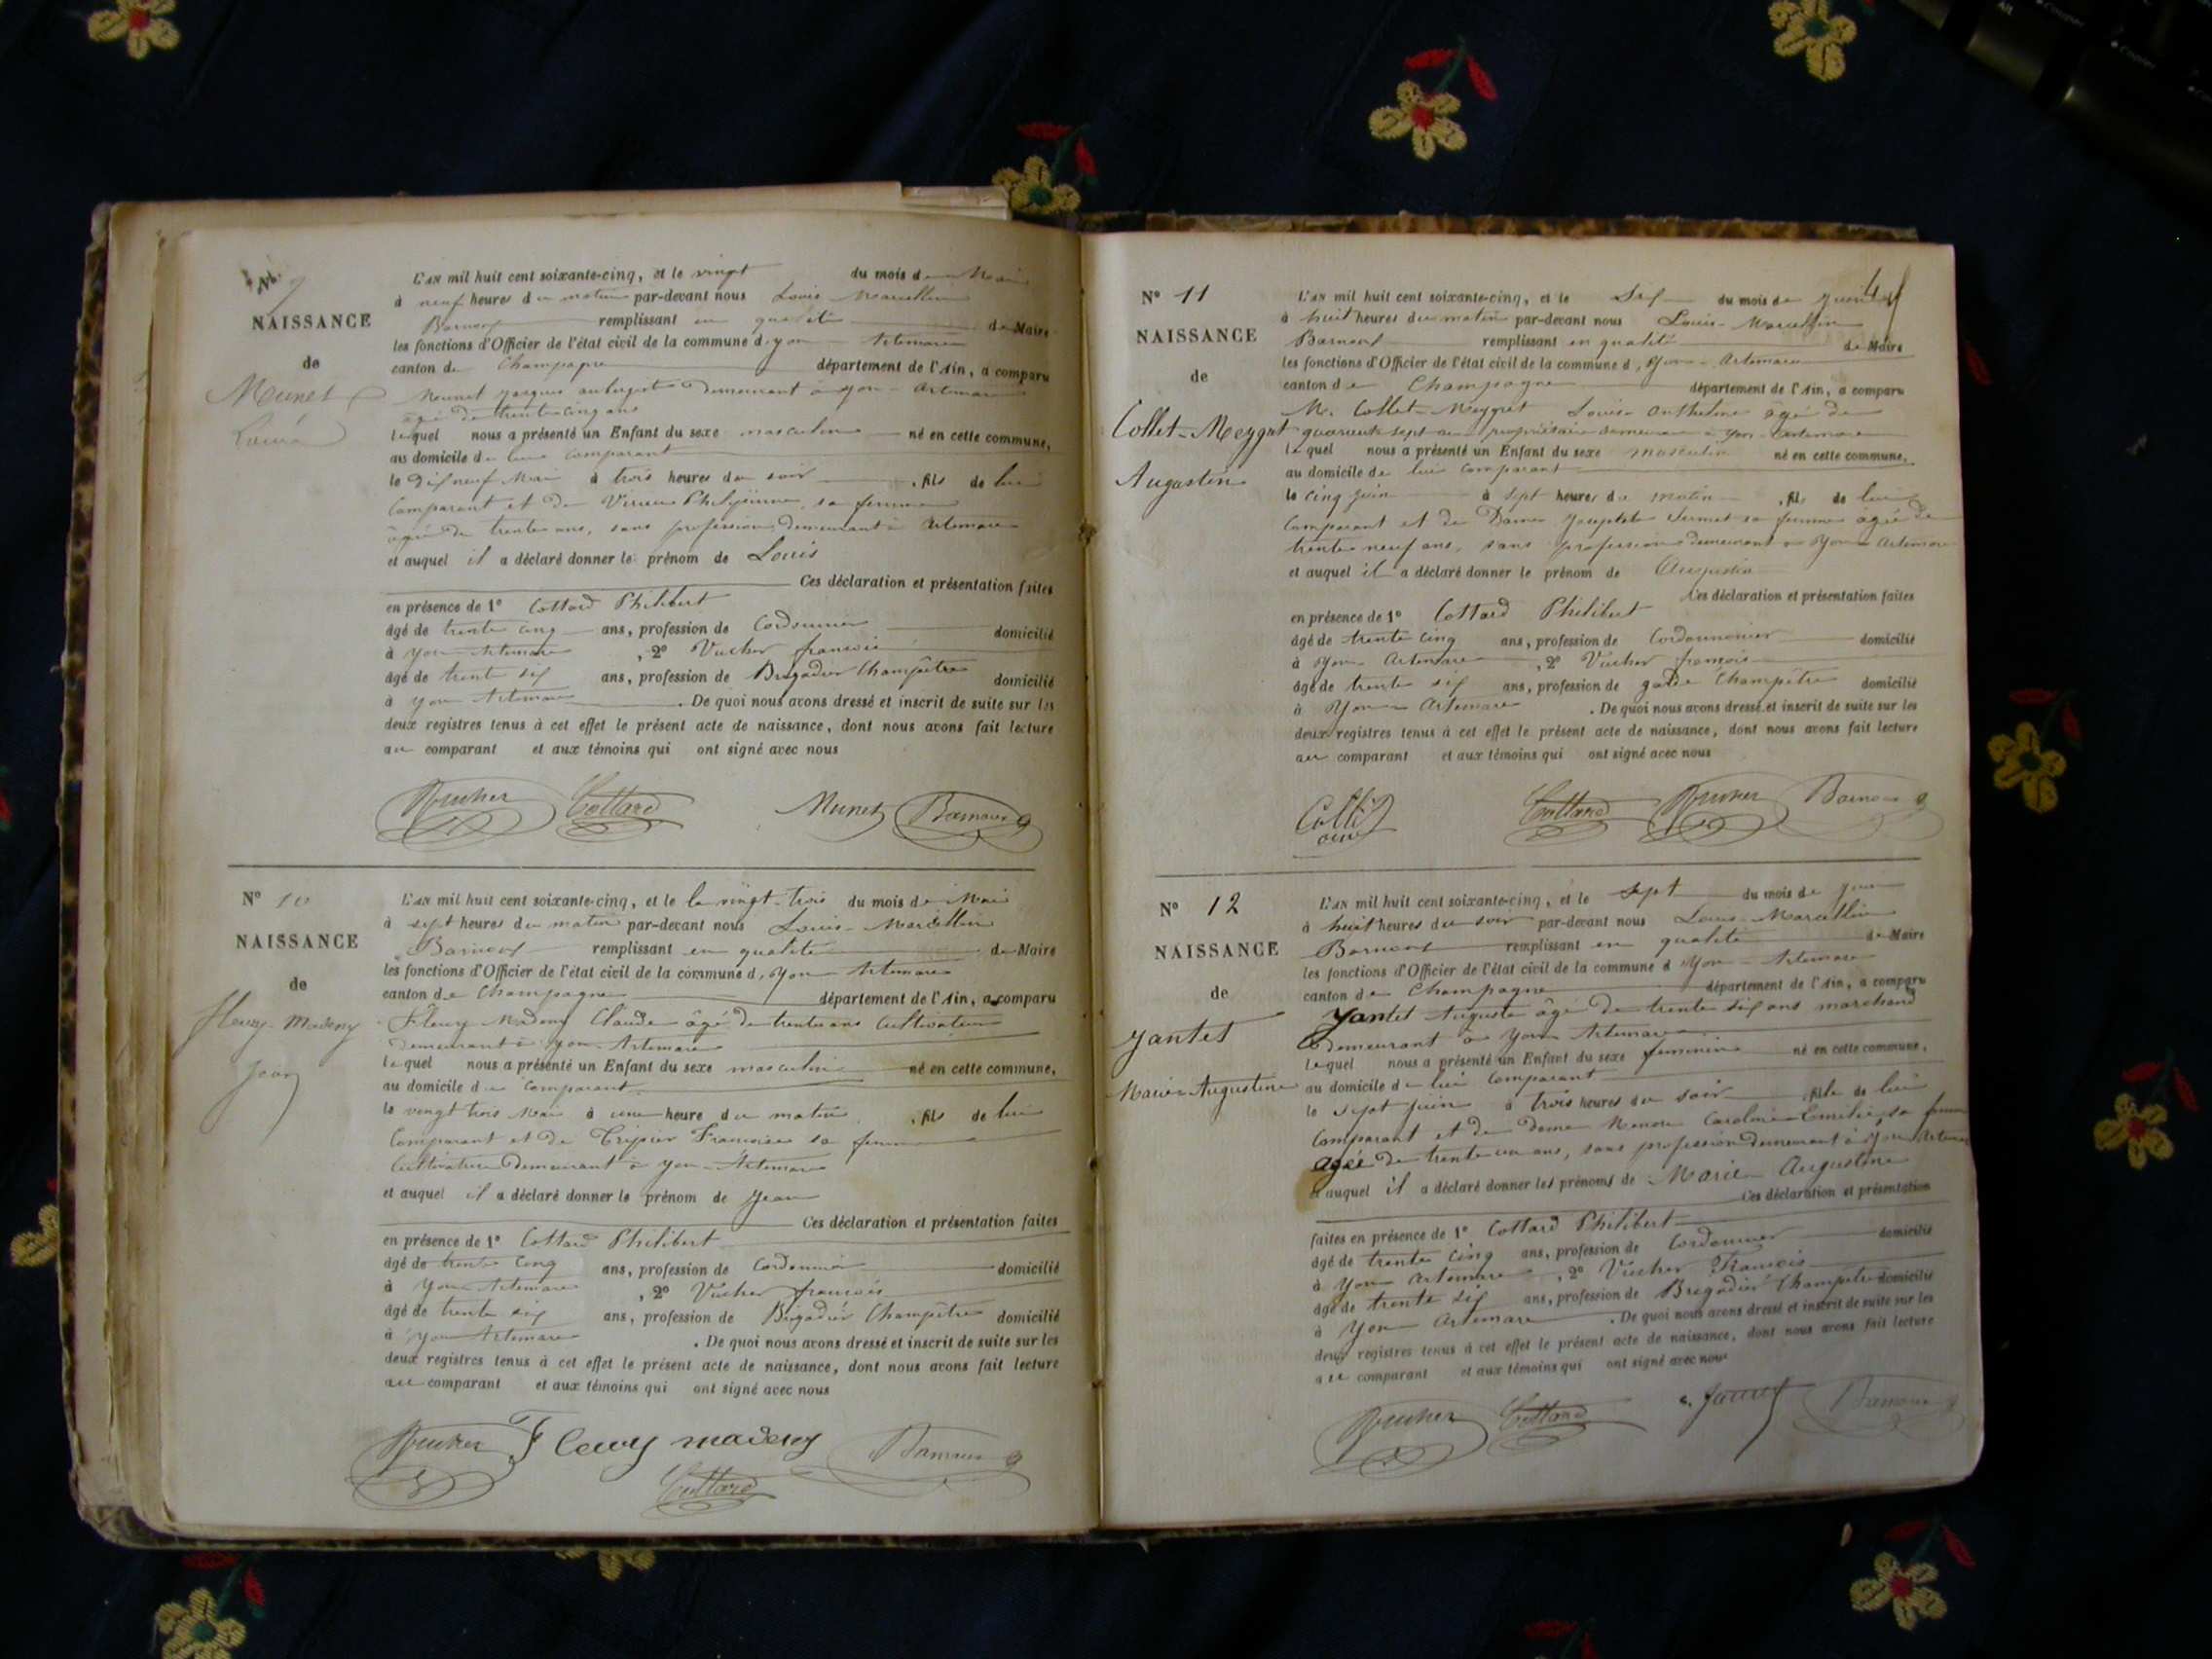 N° 9
NAISSANCE
de
Munet
Louis
L'AN mil huit cent soixante-cinq, et le vingt du mois de Mai
à neuf heures du matin par-devant nous Louis Marcellin
Barnoux remplissant en qualité de Maire
les fonctions d'Officier de l'état civil de la commune d'yon Artemare
canton de Champagne département de l'Ain, a comparu
Munet Jacques aubergiste demeurant à yon-Artemare
âgé de trente cinq ans
lequel nous a présenté un Enfant du sexe masculin né en cette commune,
au domicile de lui comparant
le dix neuf Mai à trois heures du soir, fils de lui
comparant et de sa femme
âgée de trente ans, sans profession demeurant à Artemare
et auquel il a déclaré donner le prénom de Louis
Ces déclaration et présentation faites
en présence de 1° Cottard Philibert
âgé de trente cinq ans, profession de Cordonnier domicilié
à yon Artemare, 2° Vucher francois
âgé de trente six ans, profession de Brigadier Champêtre domicilié
à yon Artemare. De quoi nous avons dressé et inscrit de suite sur les
deux registres tenus à cet effet le présent acte de naissance, dont nous avons fait lecture
au comparant et aux témoins qui ont signé avec nous
Vucher Cottard Munet Barnoux
N° 10
NAISSANCE
de
fleury-Madeny
Jean
L'AN mil huit cent soixante-cinq, et le le vingt-trois du mois de Mai
à sept heures du matin par-devant nous Louis-Marcellin
Barnoux remplissant en qualité de Maire
les fonctions d'Officier de l'état civil de la commune d'yon Artemare
canton de Champagne département de l'Ain, a comparu
Fleury Madeny Claude âgé de trente ans Cultivateur
demeurant à yon-Artemare
lequel nous a présenté un Enfant du sexe masculin né en cette commune,
au domicile du comparant
le vingt trois Mai à une heure du matin, fils de lui
comparant et de Tripier Francoise sa femme
Cultivatrice demeurant à yon-Artemare
et auquel il a déclaré donner le prénom de Jean
Ces déclaration et présentation faites
en présence de 1° Cottard Philibert
âgé de trente cinq ans, profession de Cordonnier domicilié
à yon Artemare, 2° Vucher francois
âgé de trente six ans, profession de Brigadier Champêtre domicilié
à yon Artemare. De quoi nous avons dressé et inscrit de suite sur les
deux registres tenus à cet effet le présent acte de naissance, dont nous avons fait lecture
au comparant et aux témoins qui ont signé avec nous
Vucher Fleury madeny Barnoux
Cottard
4
N° 11
NAISSANCE
de
Collet-Meygret
Augustin
L'AN mil huit cent soixante-cinq, et le six du mois de juin
à huit heures du matin par-devant nous Louis-Marcellin
Barnoux remplissant en qualité de Maire
les fonctions d'Officier de l'état civil de la commune d'yon-Artemare
canton de Champagne département de l'Ain, a comparu
M. Collet-Meygret Louis-Anthelme âgé de
quarante sept ans propriétaire demeurant à yon-Artemare
lequel nous a présenté un Enfant du sexe masculin né en cette commune,
au domicile de lui comparant
le cinq juin à sept heures du matin, fils de lui
comparant et de Dame Josephte Sermet sa femme âgée de
trente neuf ans, sans profession demeurant à yon-Artemare
et auquel il a déclaré donner le prénom de Augustin
Ces déclaration et présentation faites
en présence de 1° Cottard Philibert
âgé de trente cinq ans, profession de Cordonnier domicilié
à yon-Artemare, 2° Vucher francois
âgé de trente six ans, profession de garde Champêtre domicilié
à yon-Artemare. De quoi nous avons dressé et inscrit de suite sur les
deux registres tenus à cet effet le présent acte de naissance, dont nous avons fait lecture
au comparant et aux témoins qui ont signé avec nous
Cottard Vucher Barnoux
N° 12
NAISSANCE
de
Jantet
Marie-Augustine
L'AN mil huit cent soixante-cinq, et le sept du mois de juin
à huit heures du soir par-devant nous Louis-Marcellin
Barnoux remplissant en qualité de Maire
les fonctions d'Officier de l'état civil de la commune d'yon-Artemare
canton de Champagne département de l'Ain, a comparu
Jantet Auguste âgé de trente six ans marchand
demeurant à yon Artemare
lequel nous a présenté un Enfant du sexe feminin né en cette commune,
au domicile de lui comparant
le sept juin à trois heures du soir, fille de lui
comparant et de dame Caroline-Emélie sa femme
âgée de trente un ans, sans profession demeurant à yon Artemare
et auquel il a déclaré donner les prénoms de Marie Augustine
Ces déclaration et présentation
faites en présence de 1° Cottard Philibert
âgé de trente cinq ans, profession de Cordonnier domicilié
à yon Artemare, 2° Vucher Francois
âgé de trente six ans, profession de Brigadier Champêtre domicilié
à yon Artemare. De quoi nous avons dressé et inscrit de suite sur les
deux registres tenus à cet effet le présent acte de naissance, dont nous avons fait lecture
au comparant et aux témoins qui ont signé avec nous
Vucher Cottard Jantet Barnoux